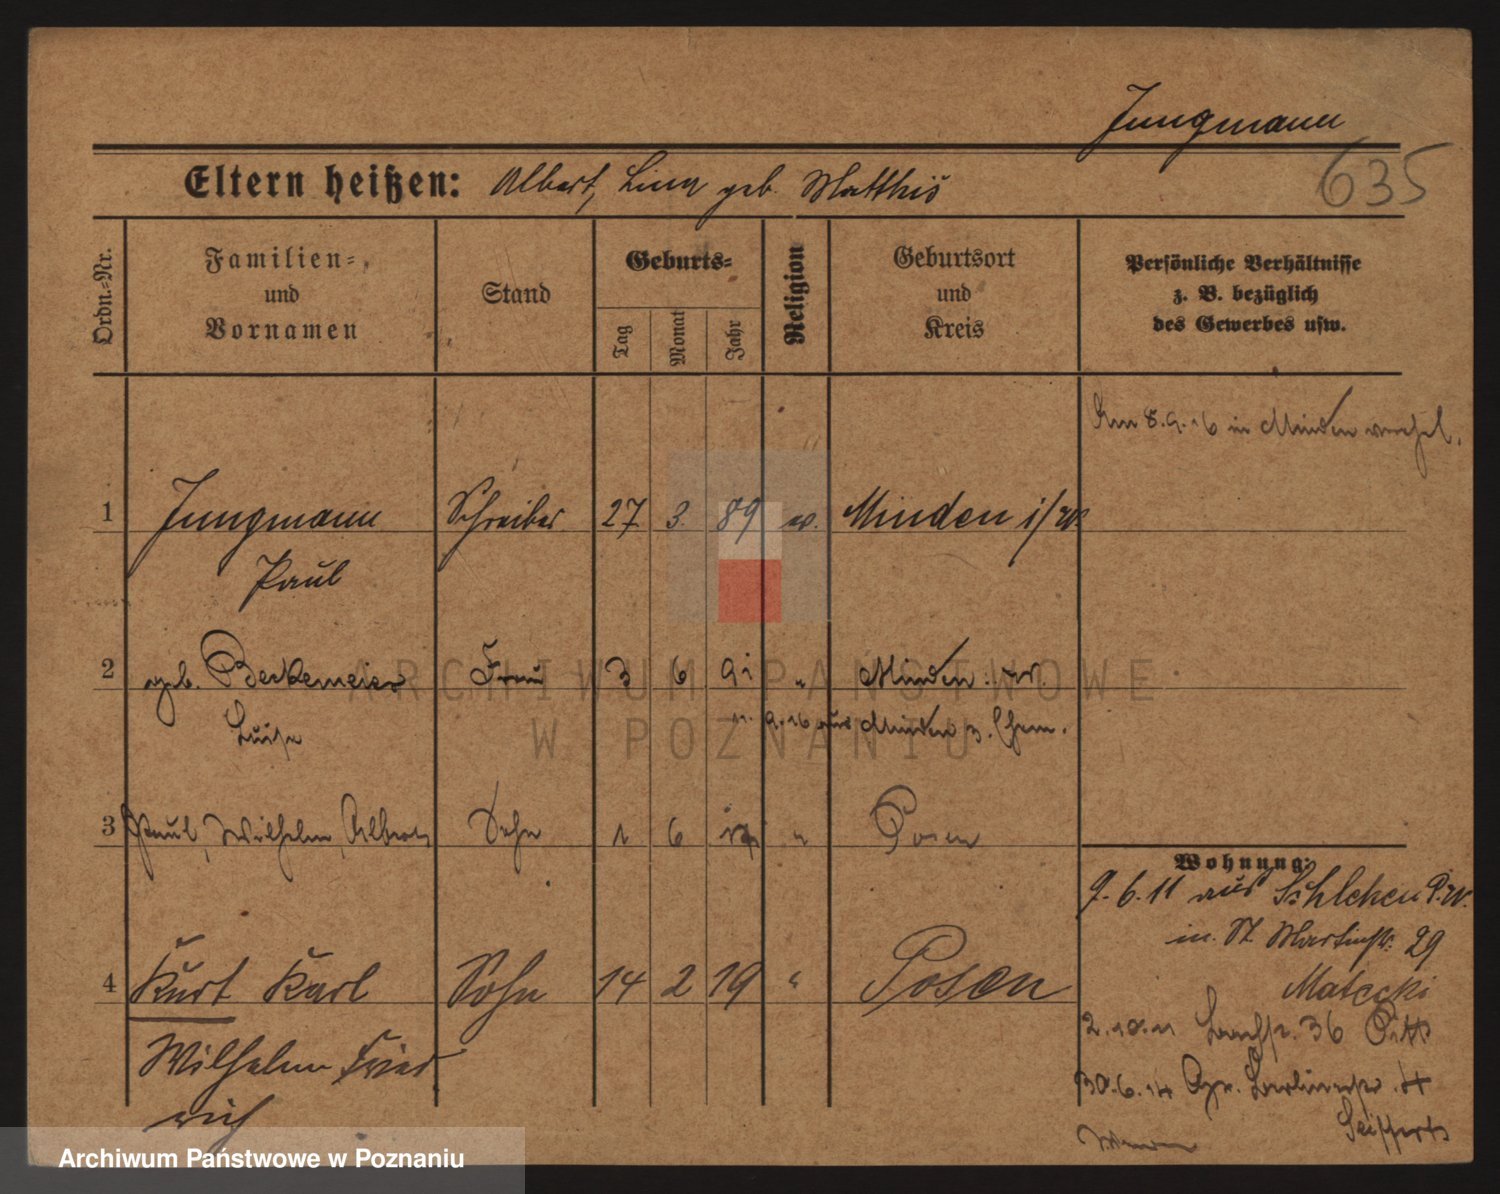 Jungmann
635
Eltern heißen: Albert, Lina geb. Matthis
Ordn.-Nr.
Familien-
und
Vornamen
Stand
Geburts-
Tag
Monat
Jahr
Religion
Geburtsort
und
Kreis
Persönliche Verhältnisse
z. B. bezüglich
des Gewerbes usw.
Am 8.9.16 in Minden verehel.
1 Jungmann Schreiber 27 3. 89 ev. Minden i/W
Paul
2 geb. Beckemeier Frau 3 6 91 " Minden i. W.
Luise 11. 9.16 aus Minden z. Ehem.
3 Paul, Wilhelm, Albert Sohn 1 6 17 " Posen
Wohnung:
9.6.11 aus Schlehen P.W.
in. St Martinstr. 29
Matecki
4 Kurt Karl Sohn 14 2 19 " Posen
2.10.11 36
Wilhelm Fried
30.6.14 Gr. Berlinerstr.
rich
Seiffert
ARCHIWUM PAŃSTWOWE
W POZNANIU
Archiwum Państwowe w Poznaniu